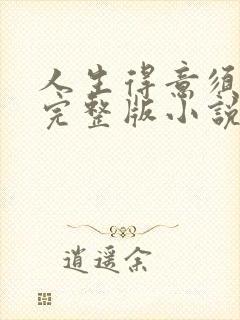 人生得意须
完整版小说
逍遥余